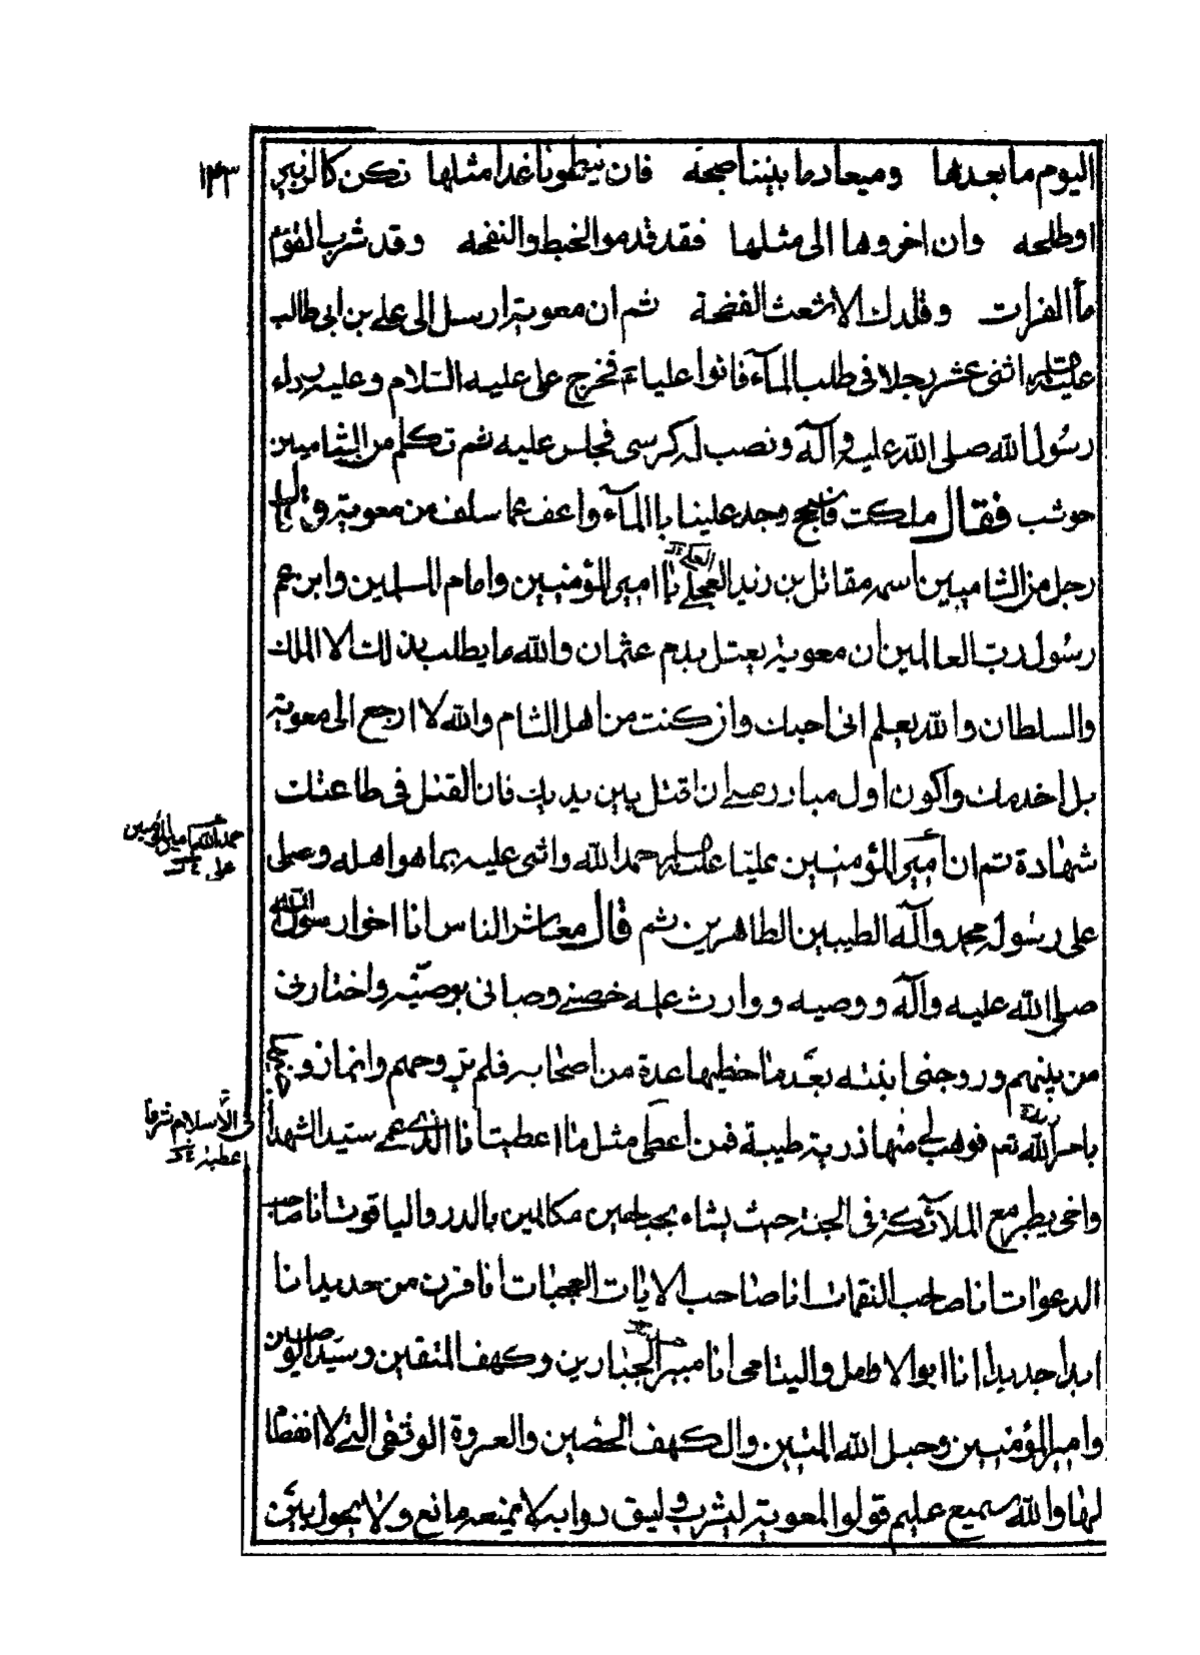 ١٤٣
اليوم ما بعدها وميعاد ما بيننا صبحه فان يطونا غدا مثلها نكن كالزبير
او طلحه وان اخروها الى مثلها فقد قدموا الخبط والنفحه وقد شرب القوم
ماء الفرات وقلدك الاشعث الفضحة ثم ان معوية ارسل الى علي بن ابى طالب
عليه السلام اثنى عشر رجلا فى طلب المآء فاتوا علياء فخرج على عليه السّلام وعليه رداء
رسُول الله صلى الله عليه وآله ونصب له كرسى فجلس عليه ثم تكلم من الشاميين
حوشب فقال ملكت فاسجح وجد علينا باالمآء واعف عما سلف من معوية وقال
رجل من الشاميين اسمه مقاتل بن زيد العجلے يا امير المؤمنين وامام المسلمين وابن عم
رسُول ربّ العالمين ان معوية يعتل بدم عثمان والله ما يطلب بذلك الا الملك
والسلطان والله يعلم انى احبك وان كنت من اهل الشام والله لا ارجع الى معوية
بل اخدمك واكون اول مبارز عسے ان اقتل بين يديك فان القتل فى طاعتك
شهادة ثم ان أمير المؤمنين عليّا عليه السلام حمد الله واثنى عليه بما هو اهله وصلى
حمد الله امير المؤمنين
على
على رسُوله محمد وآله الطيبين الطاهرين ثم قال معاشر الناس انا اخو رسول الله
صلى الله عليه وآله ووصيه ووارث علمه خصنے وحبانى بوصيّته واختارنى
من بينهم وزوجنى ابنته بعَد ما خطبها عدة من اصحابه فلم يزوجهم وانما زوجنى
بامر الله نعم فوهب لے منها ذرية طيبة فمن اعطى مثل ما اعطيت انا الذى عمے سيّد الشهدا
فى الاسلام شرفا
اعطيته
واخى يطير مع الملائكة فى الجنة حيث يشاء بجناحين مكللين بالدر والياقوت انا صاحب
الدعوات انا صاحب النقمات انا صاحب الايات العجبات انا قرن من حديد انا
ابدا جديد انا ابوالارامل واليتامى انا مبير الجبارين وكهف المتقين وسيّد الوصيين
وامير المؤمنين وحبل الله المتين والكهف الحصين والعروة الوثقى التے لا انفصام
لها والله سميع عليم قولوا لمعوية ليشرب وليسق دوابه لا يمنعه مانع ولا يحول بين